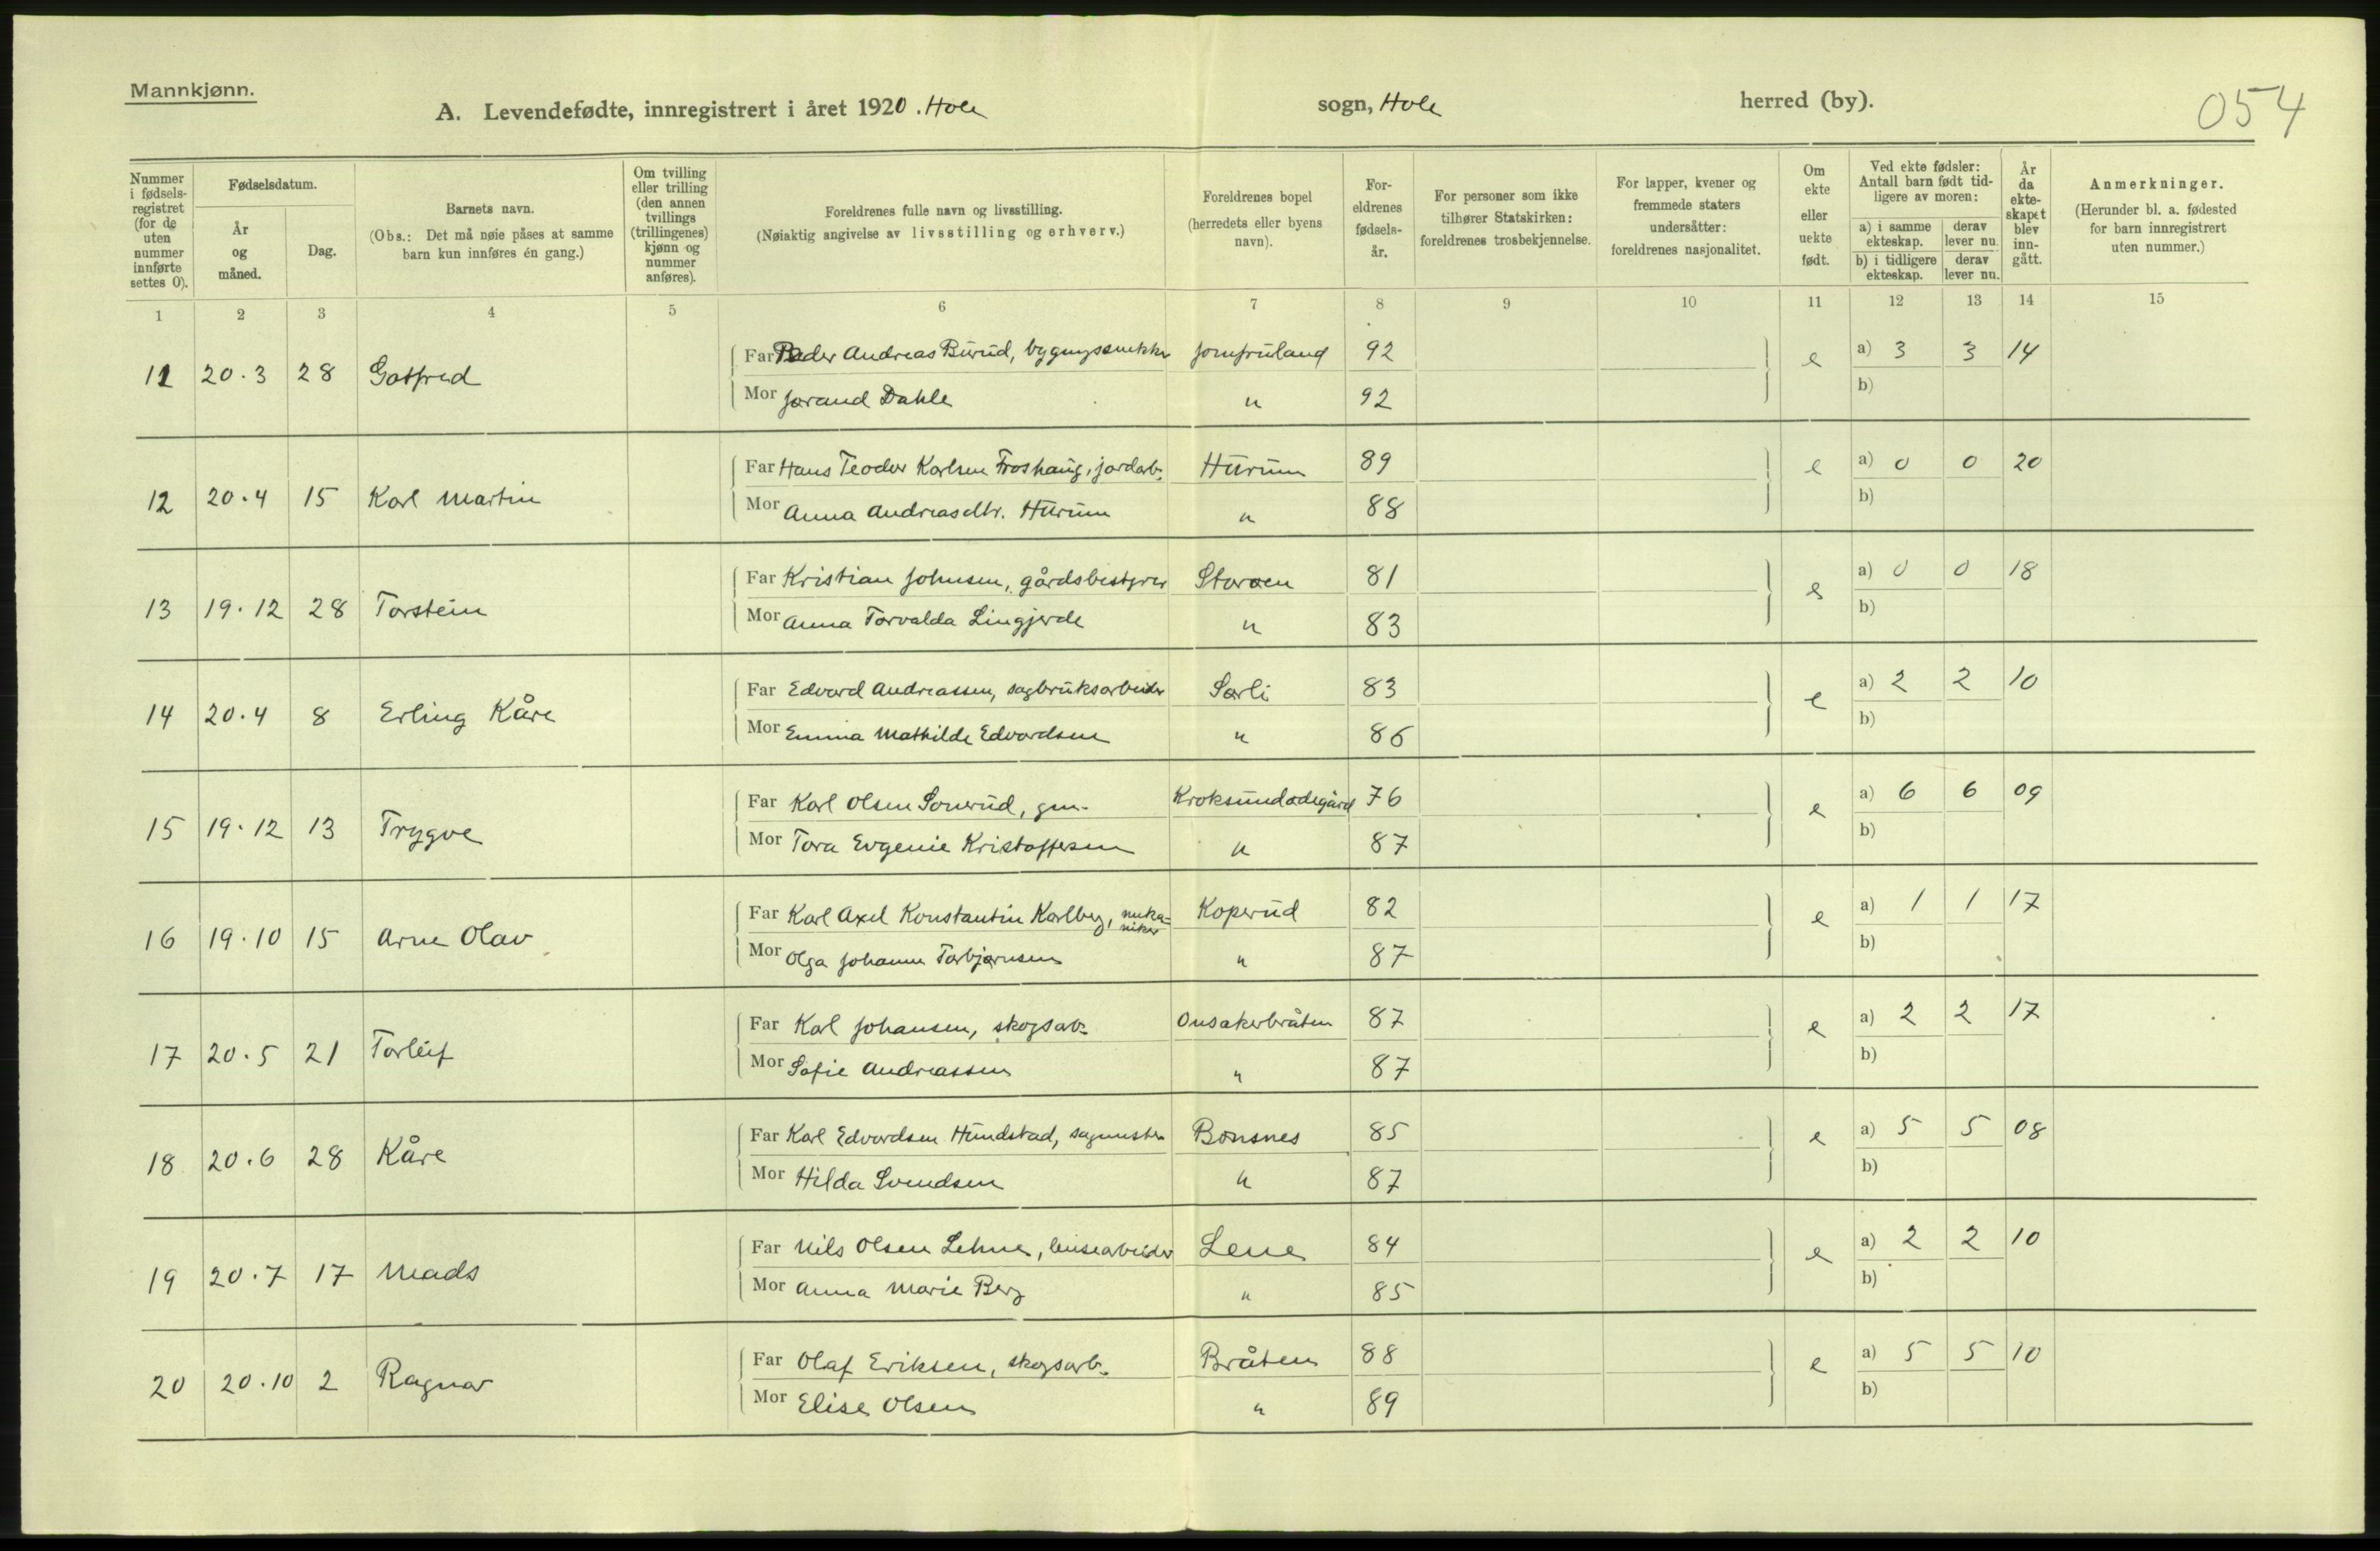 Mannkjønn.
A. Levendefødte, innregistrert i året 1920. Hole sogn, Hole herred (by).
054
Nummer i fødselsregistret (for de uten nummer innførte settes 0).
Fødselsdatum.
År og måned.
Dag.
Barnets navn.
(Obs.: Det må nøie påses at samme barn kun innføres én gang.)
Om tvilling eller trilling (den annen tvillings (trillingenes) kjønn og nummer anføres).
Foreldrenes fulle navn og livsstilling.
(Nøiaktig angivelse av livsstilling og erhverv.)
Foreldrenes bopel (herredets eller byens navn).
Foreldrenes fødselsår.
For personer som ikke tilhører Statskirken: foreldrenes trosbekjennelse.
For lapper, kvener og fremmede staters undersåtter: foreldrenes nasjonalitet.
Om ekte eller uekte født.
Ved ekte fødsler: Antall barn født tidligere av moren:
a) i samme ekteskap. derav lever nu.
b) i tidligere ekteskap. derav lever nu.
År da ekteskapet blev inngått.
Anmerkninger.
(Herunder bl. a. fødested for barn innregistrert uten nummer.)
1 2 3 4 5 6 7 8 9 10 11 12 13 14 15
11 20.3 28 Gotfred
Far Peder Andreas Burud, bygnyssnekker Jomfruland 92 e a) 3 3 14
Mor Jorand Dahle " 92 b)
12 20.4 15 Karl Martin
Far Hans Teodor Karlsen Froshaug, jordarb. Hurum 89 e a) 0 0 20
Mor Anna Andreasdtr. Hurum " 88 b)
13 19.12 28 Torstein
Far Kristian Johnsen, gårdsbestyrer Storøen 81 e a) 0 0 18
Mor Anna Torvalda Lingjerde " 83 b)
14 20.4 8 Erling Kåre
Far Edvard Andreassen, sagbruksarbeider Sørli 83 e a) 2 2 10
Mor Emma Mathilde Edvardsen " 86 b)
15 19.12 13 Trygve
Far Karl Olsen Sonerud, gm. Kroksundødegård 76 e a) 6 6 09
Mor Tora Evgenie Kristoffersen " 87 b)
16 19.10 15 Arne Olav
Far Karl Axel Konstantin Karlberg, mekaniker Koperud 82 e a) 1 1 17
Mor Olga Johanne Torbjørnsen " 87 b)
17 20.5 21 Torleif
Far Karl Johansen, skogsarb. Onsakerbråten 87 e a) 2 2 17
Mor Sofie Andreassen " 87 b)
18 20.6 28 Kåre
Far Karl Edvardsen Hundstad, sagmester Bønsnes 85 e a) 5 5 08
Mor Hilda Svendsen " 87 b)
19 20.7 17 Mads
Far Nils Olsen Lehne, lensearbeider Lene 84 e a) 2 2 10
Mor Anna Marie Berg " 85 b)
20 20.10 2 Ragnar
Far Olaf Eriksen, skogsarb. Bråten 88 e a) 5 5 10
Mor Elise Olsen " 89 b)